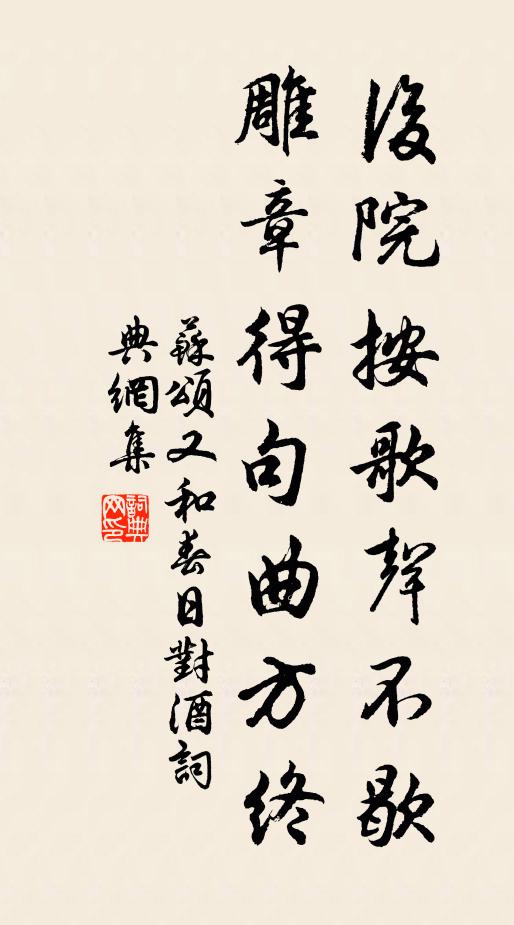 後院按歌聲不歇
雕章得句曲方終
蘇頌又和春日對酒詞
典網集
詞典網印